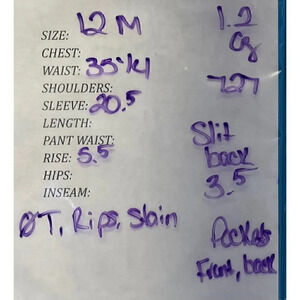 SIZE: 12 M
CHEST:
WAIST: 35-41
SHOULDERS:
SLEEVE: 20.5
LENGTH:
PANT WAIST:
RISE: 5.5
HIPS:
INSEAM:
ØT, Rips, Stain
1.2
727
Slit
back
3.5
Pockets
Front, back